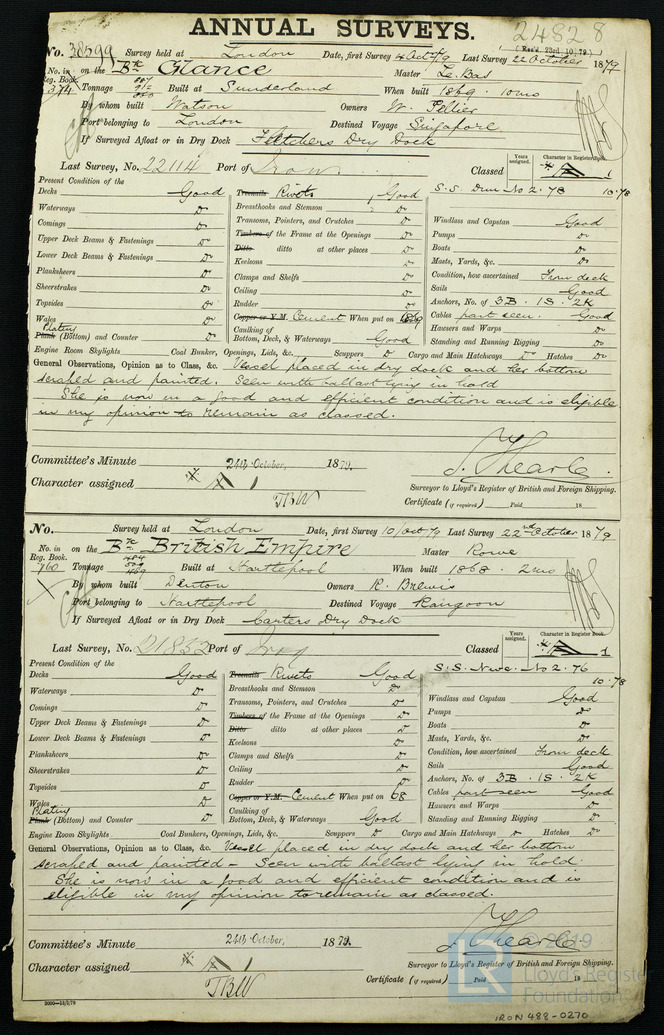 ANNUAL SURVEYS.
24828
(Rec'd. 23rd. 10. 79.)
No. 38599 Survey held at London Date, first Survey 4 Oct /79 Last Survey 22 October 1879
No. in Reg. Book. 374 on the Bk Glance Master Le Bas
Tonnage Built at Sunderland When built 1869. 10mo
By whom built Watson Owners W. Pellier
Port belonging to London Destined Voyage Singapore
If Surveyed Afloat or in Dry Dock Fletchers Dry Dock
Last Survey, No. 22114 Port of Iron Classed Years assigned. Character in Register Book. A 1
Present Condition of the
Decks Good
Waterways Do
Comings Do
Upper Deck Beams & Fastenings Do
Lower Deck Beams & Fastenings Do
Planksheers Do
Sheerstrakes Do
Topsides Do
Wales Do
Plating
Plank (Bottom) and Counter Do
Treenails Rivets Good
Breasthooks and Stemson Do
Transoms, Pointers, and Crutches Do
Timbers of the Frame at the Openings Do
Ditto ditto at other places Do
Keelsons Do
Clamps and Shelfs Do
Ceiling Do
Rudder Do
Copper or Y.M. Cement When put on 1869
Caulking of
Bottom, Deck, & Waterways Good
S.S. Dun No 2. 78 10.78
Windlass and Capstan Good
Pumps Do
Boats Do
Masts, Yards, &c. Do
Condition, how ascertained From deck
Sails Good
Anchors, No. of 3B. 1S. 2K
Cables part seen. Good
Hawsers and Warps Do
Standing and Running Rigging Do
Engine Room Skylights Coal Bunker, Openings, Lids, &c. Scuppers Do Cargo and Main Hatchways Do Hatches Do
General Observations, Opinion as to Class, &c. Vessel placed in dry dock and her bottom
scraped and painted. Seen with ballast lying in hold
She is now in a good and efficient condition and is eligible
in my opinion to remain as classed.
Committee's Minute 24th October, 1879.
Character assigned A 1
TBW
J. Thearle.
Surveyor to Lloyd's Register of British and Foreign Shipping.
Certificate (if required) Paid 18
No. Survey held at London Date, first Survey 10/Oct/79 Last Survey 22nd October 1879
No. in Reg. Book. 760 on the Bk British Empire Master Rowe
Tonnage Built at Hartlepool When built 1868. 2mo
By whom built Denton Owners R. Brewis
Port belonging to Hartlepool Destined Voyage Rangoon
If Surveyed Afloat or in Dry Dock Carters Dry Dock
Last Survey, No. 21832 Port of Iron Classed Years assigned. Character in Register Book. A 1
Present Condition of the
Decks Good
Waterways Do
Comings Do
Upper Deck Beams & Fastenings Do
Lower Deck Beams & Fastenings Do
Planksheers Do
Sheerstrakes Do
Topsides Do
Wales Do
Plating
Plank (Bottom) and Counter Do
Treenails Rivets Good
Breasthooks and Stemson Do
Transoms, Pointers, and Crutches Do
Timbers of the Frame at the Openings Do
Ditto ditto at other places Do
Keelsons Do
Clamps and Shelfs Do
Ceiling Do
Rudder Do
Copper or Y.M. Cement When put on 68
Caulking of
Bottom, Deck, & Waterways Good
S.S. Nwc. No 2. 76
10.78
Windlass and Capstan Good
Pumps Do
Boats Do
Masts, Yards, &c. Do
Condition, how ascertained From deck
Sails Good
Anchors, No. of 3B. 1S. 2K
Cables part seen Good
Hawsers and Warps Do
Standing and Running Rigging Do
Engine Room Skylights Coal Bunkers, Openings, Lids, &c. Scuppers Do Cargo and Main Hatchways Do Hatches Do
General Observations, Opinion as to Class, &c. Vessel placed in dry dock and her bottom
scraped and painted - Seen with ballast lying in hold.
She is now in a good and efficient condition and is
eligible in my opinion to remain as classed.
Committee's Minute 24th October, 1879.
Character assigned A 1
TBW
J. Thearle
Surveyor to Lloyd's Register of British and Foreign Shipping.
Certificate (if required) Paid 18
© 2019
Lloyd's Register
Foundation
IRON 488-0270